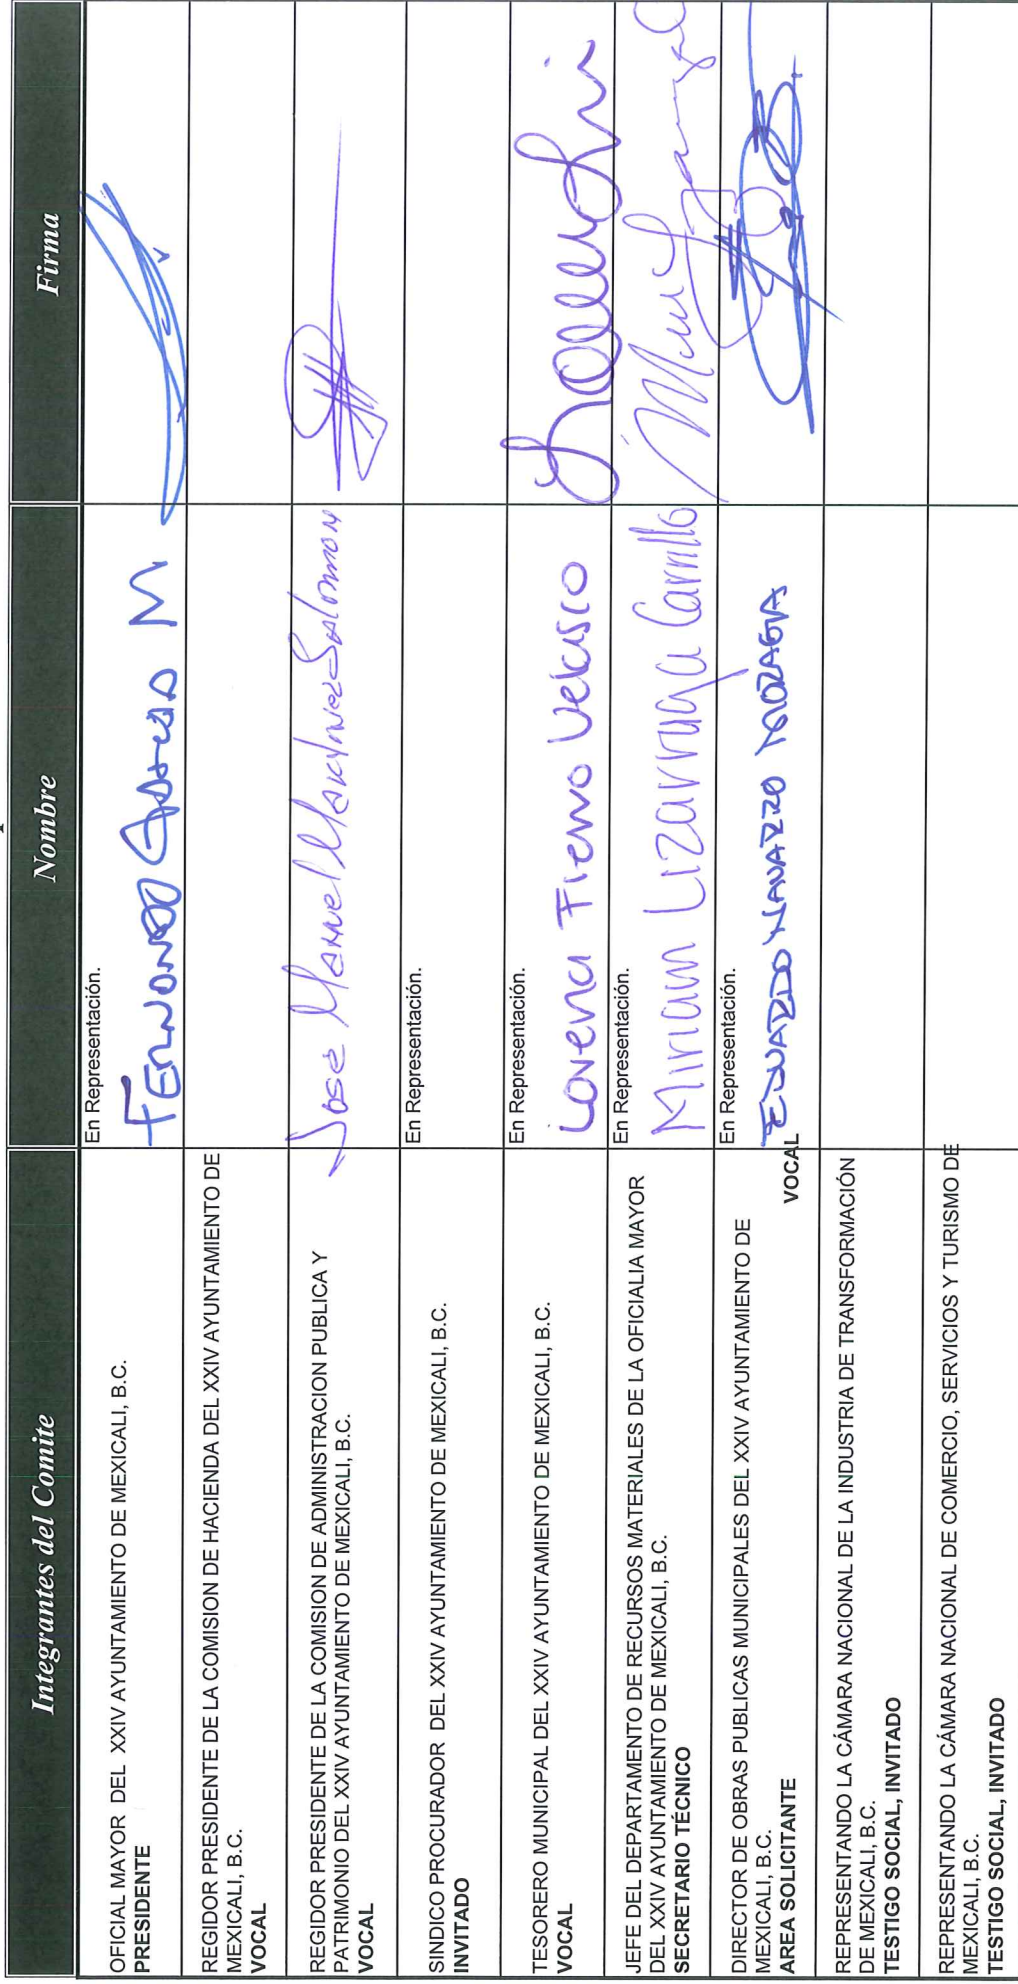 Integrantes del Comite
Nombre
Firma
OFICIAL MAYOR DEL XXIV AYUNTAMIENTO DE MEXICALI, B.C.
PRESIDENTE
En Representación.
FERNANDO GARCIA M
REGIDOR PRESIDENTE DE LA COMISION DE HACIENDA DEL XXIV AYUNTAMIENTO DE
MEXICALI, B.C.
VOCAL
REGIDOR PRESIDENTE DE LA COMISION DE ADMINISTRACION PUBLICA Y
PATRIMONIO DEL XXIV AYUNTAMIENTO DE MEXICALI, B.C.
VOCAL
José Manuel Martínez Salomon
SINDICO PROCURADOR DEL XXIV AYUNTAMIENTO DE MEXICALI, B.C.
INVITADO
En Representación.
TESORERO MUNICIPAL DEL XXIV AYUNTAMIENTO DE MEXICALI, B.C.
VOCAL
En Representación.
Lorena Fierro Velasco
JEFE DEL DEPARTAMENTO DE RECURSOS MATERIALES DE LA OFICIALIA MAYOR
DEL XXIV AYUNTAMIENTO DE MEXICALI, B.C.
SECRETARIO TÉCNICO
En Representación.
Miriam Lizarraga Carrillo
DIRECTOR DE OBRAS PUBLICAS MUNICIPALES DEL XXIV AYUNTAMIENTO DE
MEXICALI, B.C.
AREA SOLICITANTE
VOCAL
En Representación.
EDUARDO NAVARRO
REPRESENTANDO LA CÁMARA NACIONAL DE LA INDUSTRIA DE TRANSFORMACIÓN
DE MEXICALI, B.C.
TESTIGO SOCIAL, INVITADO
REPRESENTANDO LA CÁMARA NACIONAL DE COMERCIO, SERVICIOS Y TURISMO DE
MEXICALI, B.C.
TESTIGO SOCIAL, INVITADO